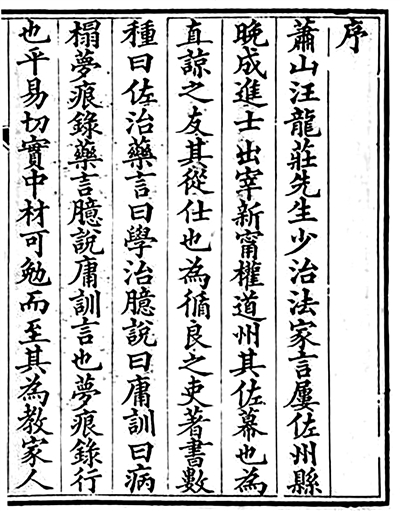 序
蕭山汪龍莊先生少治法家言屢佐州縣
晚成進士出宰新甯權道州其佐幕也為
直諒之友其從仕也為循良之吏著書數
種曰佐治藥言曰學治臆說曰庸訓曰病
榻夢痕錄藥言臆說庸訓言也夢痕錄行
也平易切實中材可勉而至其為教家人